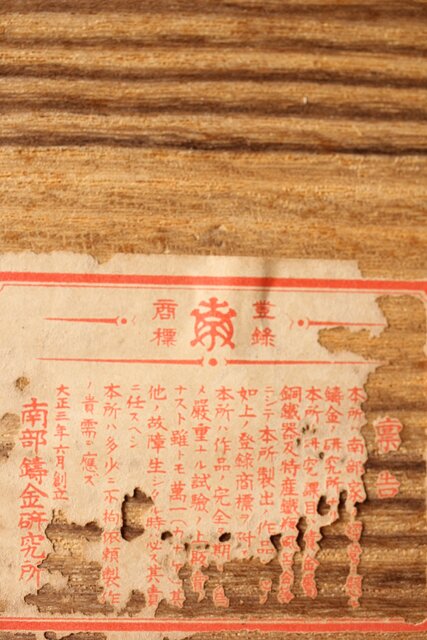 登録
商標
南
稟告
本所ハ南部家ノ
鋳金研究所
本所ノ研究課目ハ貴金属
銅鐵器及特産鐵瓶
ニシテ本所製出ノ作品ニハ
如上ノ登録商標ヲ附ス
本所ハ作品ノ完全ヲ期シ自
ラ嚴重ナル試驗ノ上販賣
ナスト雖トモ萬一
他ノ故障生シタル時ハ必ス其責
ニ任スヘシ
本所ハ多少ニ不拘依賴製作
ノ貴需ニ應ズ
大正三年六月創立
南部鑄金研究所